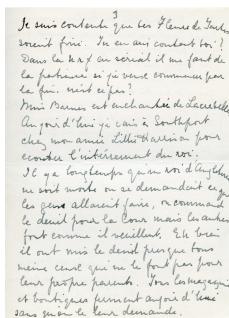 3
Je suis contente que tes Fleurs de Tarbes
soient fini. Tu en ais content toi?
Dans la n r f on serial il me faut de
la patience si j'ai venue commencer par
la fin. n'est ce pas?
Miss Barnes est enchantée de
Aujord'hui je vais à Southport
chez mon amie Lillie Harrison pour
ecouter l'intérement du roi.
Il y a longtemps qu'un roi d'Angleterre
ne soit morte on se demandait ce que
les gens allaient faire, on command
le deuil pour la Cour mais les autres
font comme il veuillent. Eh bien
il ont mis le deuil presque tous
meme ceux qui ne le font pas pour
leur propre parents. Tous les magasins
et boutiques ferment aujord'hui
sans qu'on le leur demande.